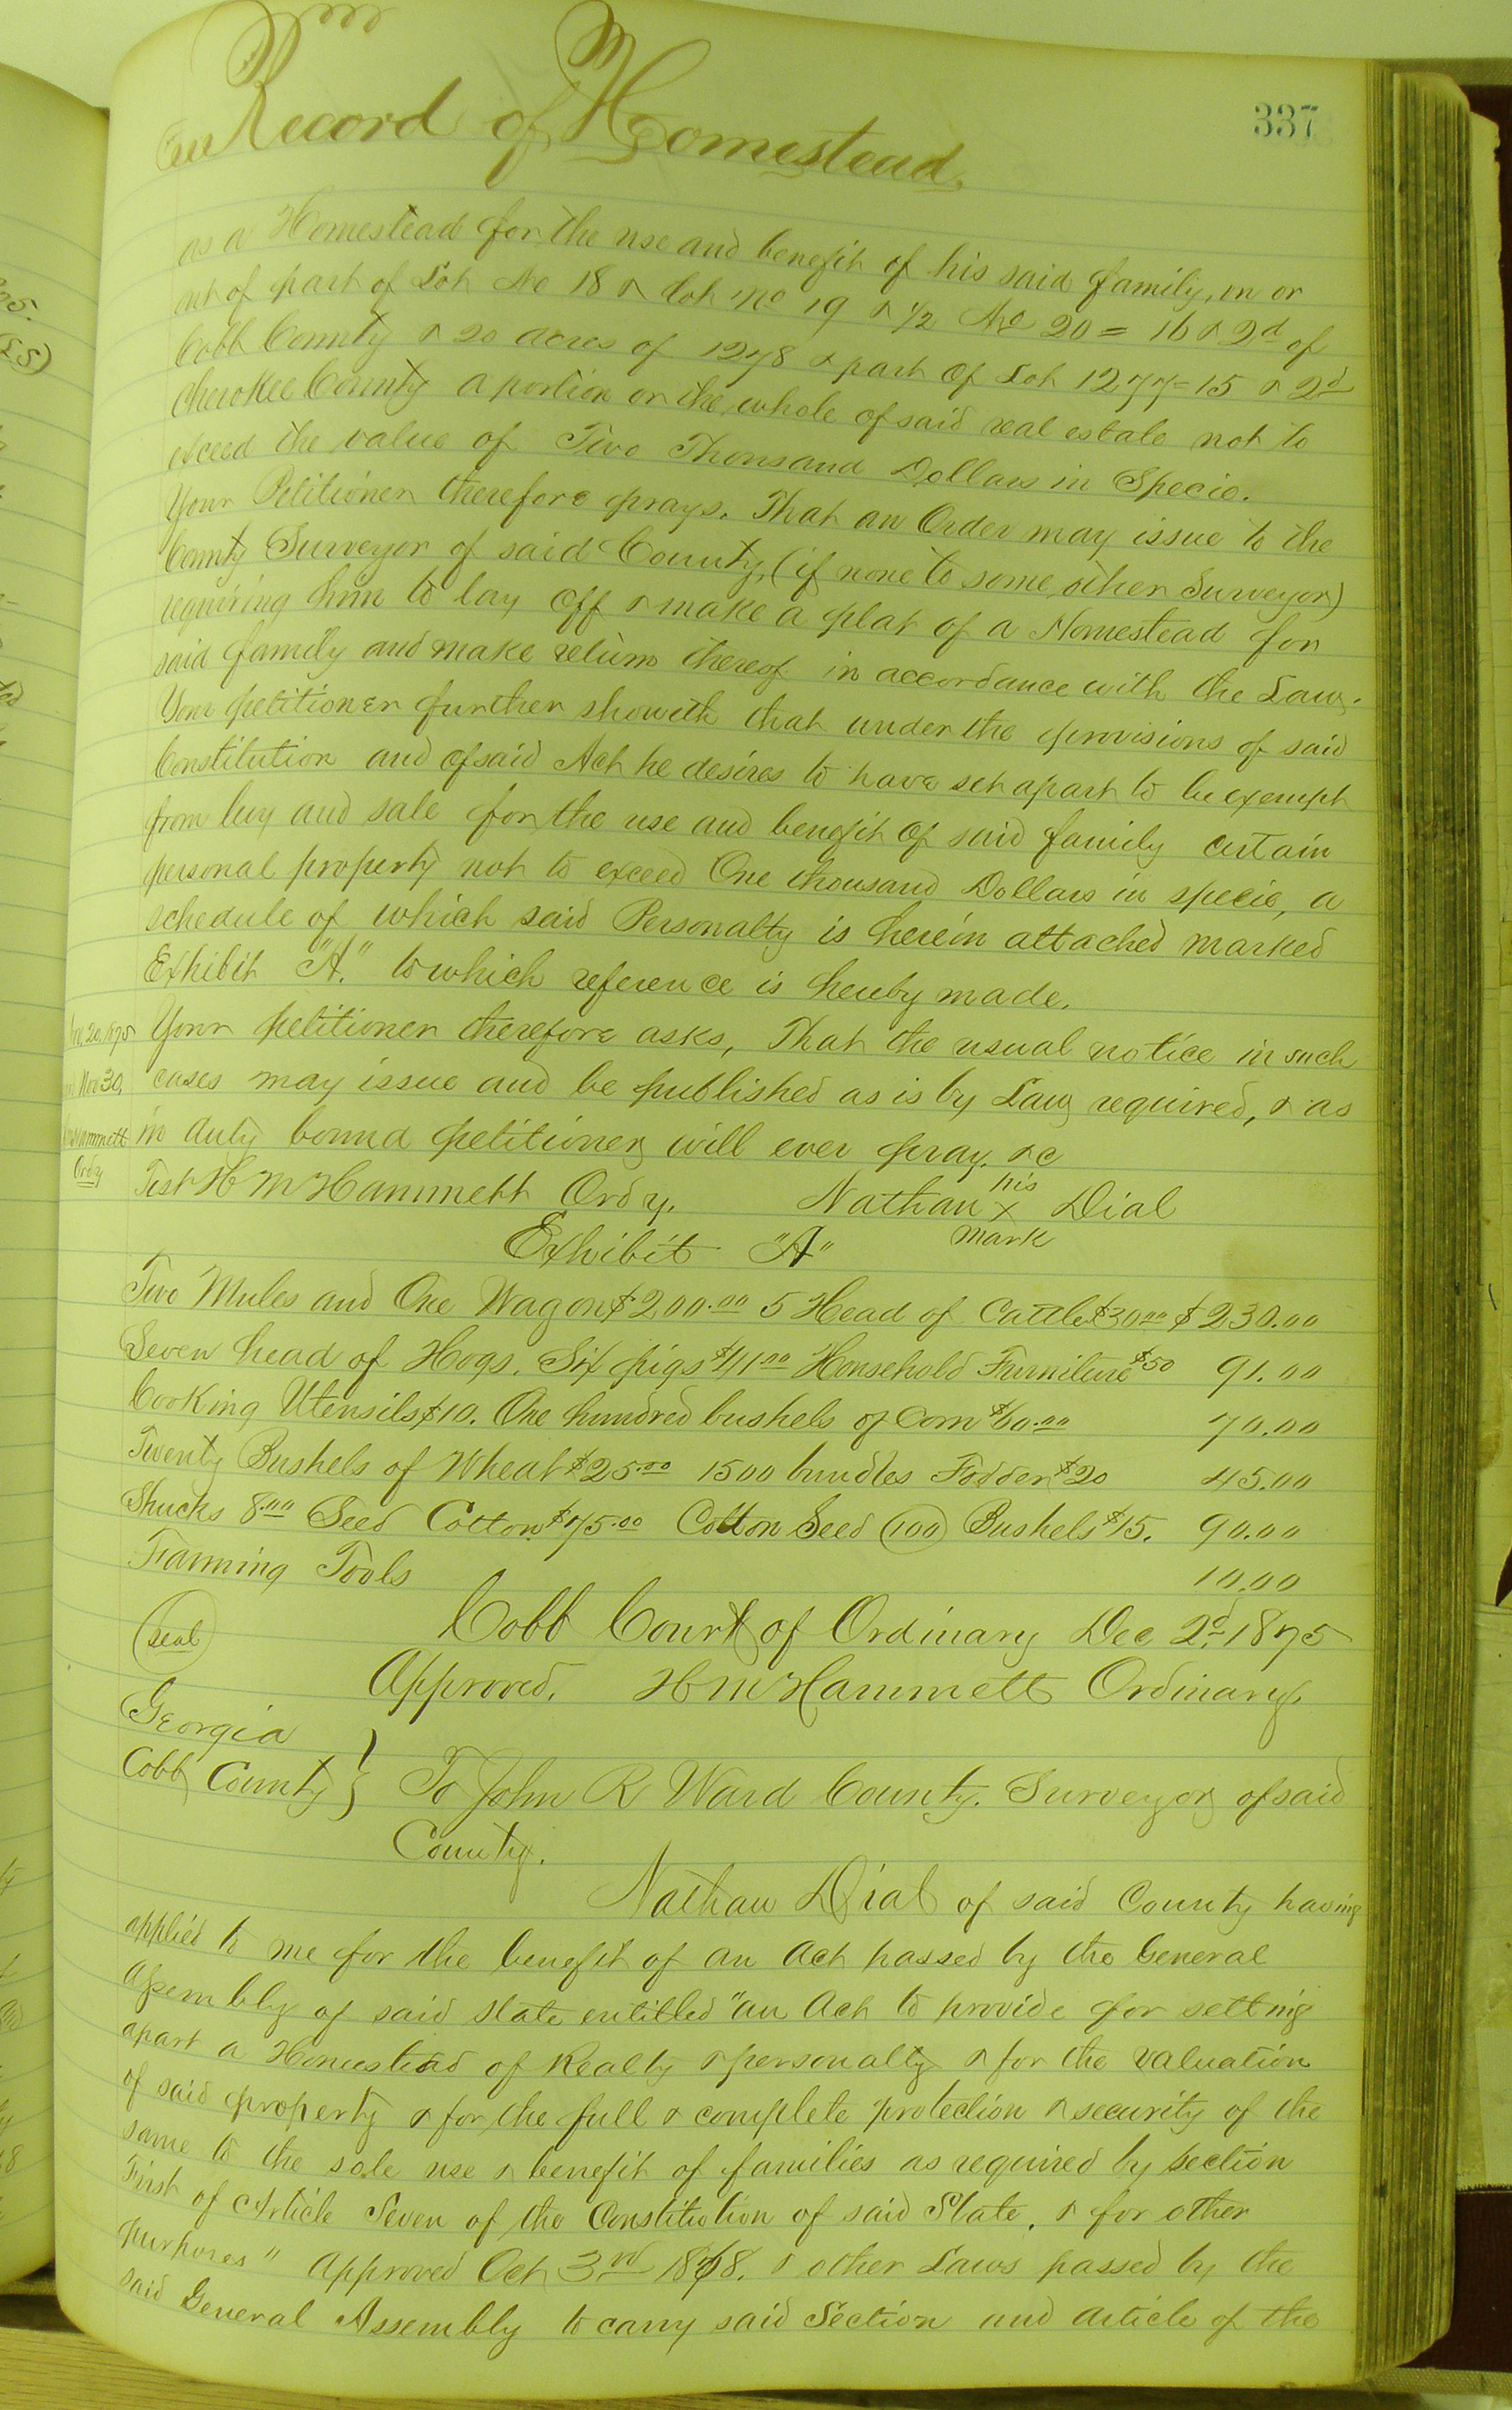 337
Record of Homestead.
as a Homestead for the use and benefit of his said family, on or
out of part of Lot No 18 & Lot No 19 & 1/2 No 20 = 16 & 2d of
Cobb County & 20 acres of 1278 & part of Lot 1277 = 15 & 2d
Cherokee County a portion or the whole of said real estate not to
exceed the value of Two Thousand Dollars in Specie.
Your Petitioner therefore prays. That an Order may issue to the
County Surveyor of said County, (if none to some other Surveyor)
requiring him to lay off & make a plat of a Homestead for
said family and make return thereof in accordance with the Law.
Your petitioner further showeth that under the provisions of said
Constitution and of said Act he desires to have set apart to be exempt
from levy and sale for the use and benefit of said family certain
personal property not to exceed One thousand Dollars in specie, a
schedule of which said Personalty is herein attached marked
Exhibit "A." to which reference is hereby made.
Your petitioner therefore asks, That the usual notice in such
cases may issue and be published as is by Law required, & as
in duty bound petitioner will ever pray. &c
20, 1875
Nov 30,
Hammett
Ordy
Test H M Hammett Ordy. Nathan his x mark Dial
Exhibit "A"
Two Mules and One Wagon $200.00 5 Head of Cattle $30.00 $230.00
Seven head of Hogs. Six pigs $41.00 Household Furniture $50 91.00
Cooking Utensils $10. One hundred bushels of Corn $60.00 70.00
Twenty Bushels of Wheat $25.00 1500 bundles Fodder $20 45.00
Shucks 8.00 Seed Cotton $75.00 Cotton Seed (100) Bushels $15. 90.00
Farming Tools 10.00
Cobb Court of Ordinary Dec 2d 1875
(seal)
Approved. H M Hammett Ordinary.
Georgia
Cobb County } To John R Ward County. Surveyor of said
County.
Nathan Dial of said County having
applied to me for the benefit of an Act passed by the General
Assembly of said State entitled "an Act to provide for setting
apart a Homestead of Realty & personalty & for the valuation
of said property & for the full & complete protection & security of the
same to the sole use & benefit of families as required by section
First of Article Seven of the Constitution of said State, & for other
purposes" Approved Oct 3rd 1868. & other Laws passed by the
said General Assembly to carry said Section and Article of the